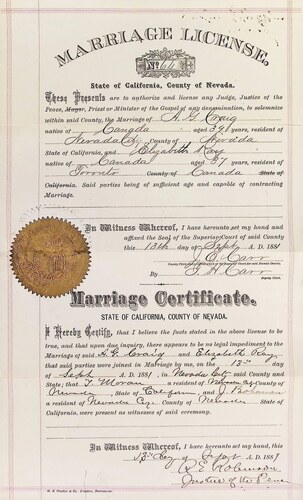 MARRIAGE LICENSE,
No 64
State of California, County of Nevada.
These Presents are to authorize and license any Judge, Justice of the
Peace, Mayor, Priest or Minister of the Gospel of any denomination, to solemnize
within said County, the Marriage of A. G. Craig
native of Canada aged 39 years, resident of
Nevada City County of Nevada
State of California, and Elizabeth Kay
native of Canada aged 37 years, resident of
Toronto County of Canada State of
California. Said parties being of sufficient age and capable of contracting
Marriage.
In Witness Whereof, I have hereunto set my hand and
affixed the Seal of the Superior Court of said County
this 13th day of Sept A. D. 1881
Carr
By Carr
Deputy Clerk
Marriage Certificate.
STATE OF CALIFORNIA, COUNTY OF NEVADA.
I Hereby Certify, that I believe the facts stated in the above license to be
true, and that upon due inquiry, there appears to be no legal impediment to the
Marriage of said A. G. Craig and Elizabeth Kay
that said parties were joined in Marriage by me, on the 13th
day of Sept 1881, in Nevada City said County and
State; that T. Moran a resident of Nevada City County of
Nevada, State of California and J.
a resident of Nevada City of Nevada State of
California, were present as witnesses of said ceremony.
In Witness Whereof, I have hereunto set my hand, this
13th day of Sept A. D. 1881
Robinson
Justice of the Peace